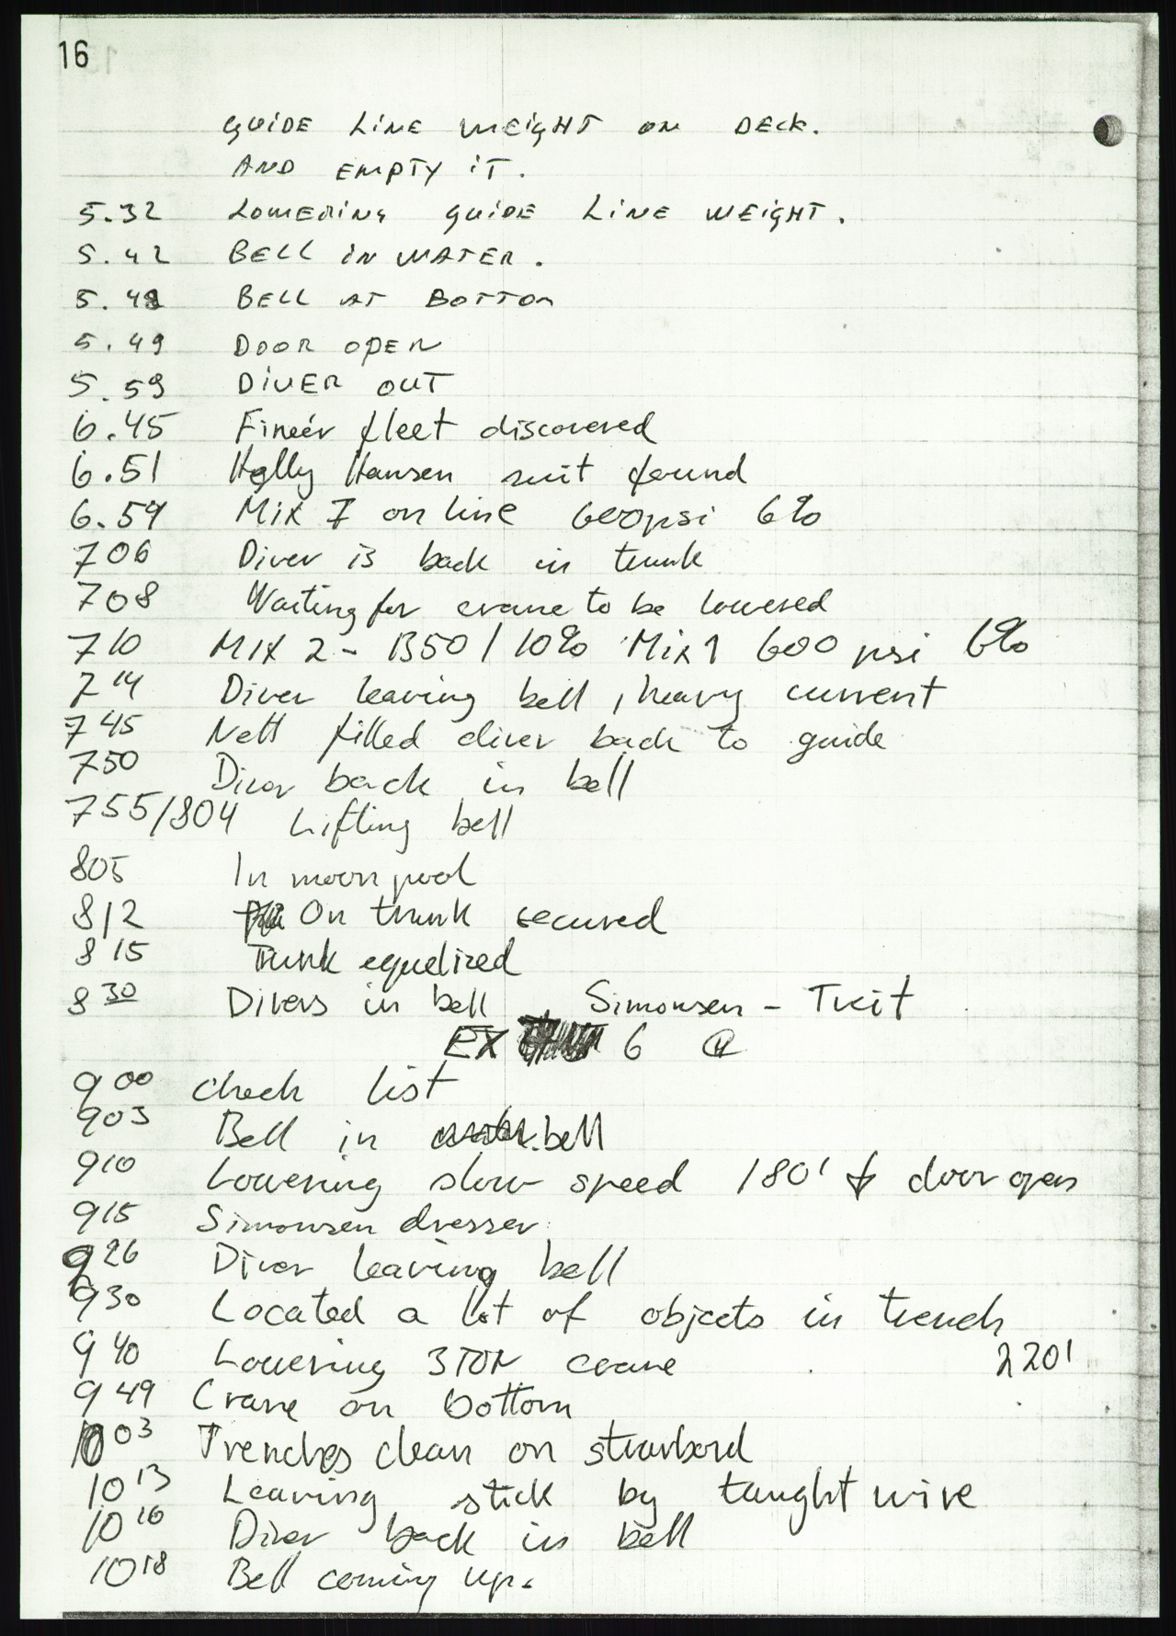 16
GUIDE LINE WEIGHT ON DECK.
AND EMPTY IT.
5.32 LOWERING GUIDE LINE WEIGHT.
5.42 BELL IN WATER.
5.48 BELL AT BOTTOM
5.49 DOOR OPEN
5.59 DIVER OUT
6.45 fleet discovered
6.51 Helly Hansen suit found
6.59 Mix 7 on line 600psi 6%
706 Diver is back in trunk
708 Waiting for crane to be lowered
710 MIX 2 - B50 / 10% Mix 1 600 psi 6%
714 Diver leaving bell, heavy current
745 Nett filled diver back to guide
750 Diver back in bell
755/804 Lifting bell
805 In moon pool
812 On trunk secured
815 Trunk equelized
830 Divers in bell Simonsen - Tveit
EX 6
900 Check list
903 Bell in bell
910 Lowering slow speed 180' door open
915 Simonsen dresser
926 Diver leaving bell
930 Located a lot of objects in trench
940 Lowering 3 TON crane 220'
949 Crane on bottom
1003 Trenches clean on starbord
1013 Leaving stick by taught wire
1016 Diver back in bell
1018 Bell coming up.